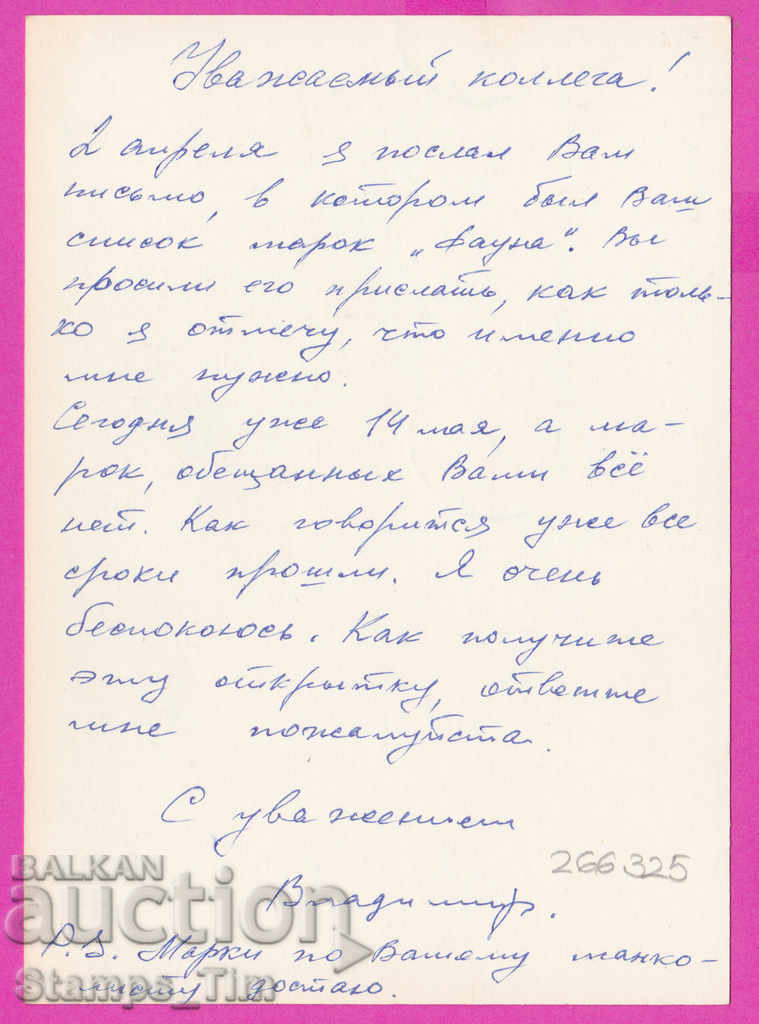 Уважаемый коллега!
2 апреля я послал Вам
письмо, в котором был Ваш
список марок „Фауна". Вы
просили его прислать, как толь-
ко я отмечу, что именно
мне нужно.
Сегодня уже 14 мая, а ма-
рок, обещанных Вами всё
нет. Как говорится уже все
сроки прошли. Я очень
беспокоюсь. Как получите
эту открытку, ответьте
мне пожалуйста.
С уважением
266325
Владимир.
P.S. Марки по Вашему манко-
листу достаю.
BALKAN
auction
Stamps_Tim